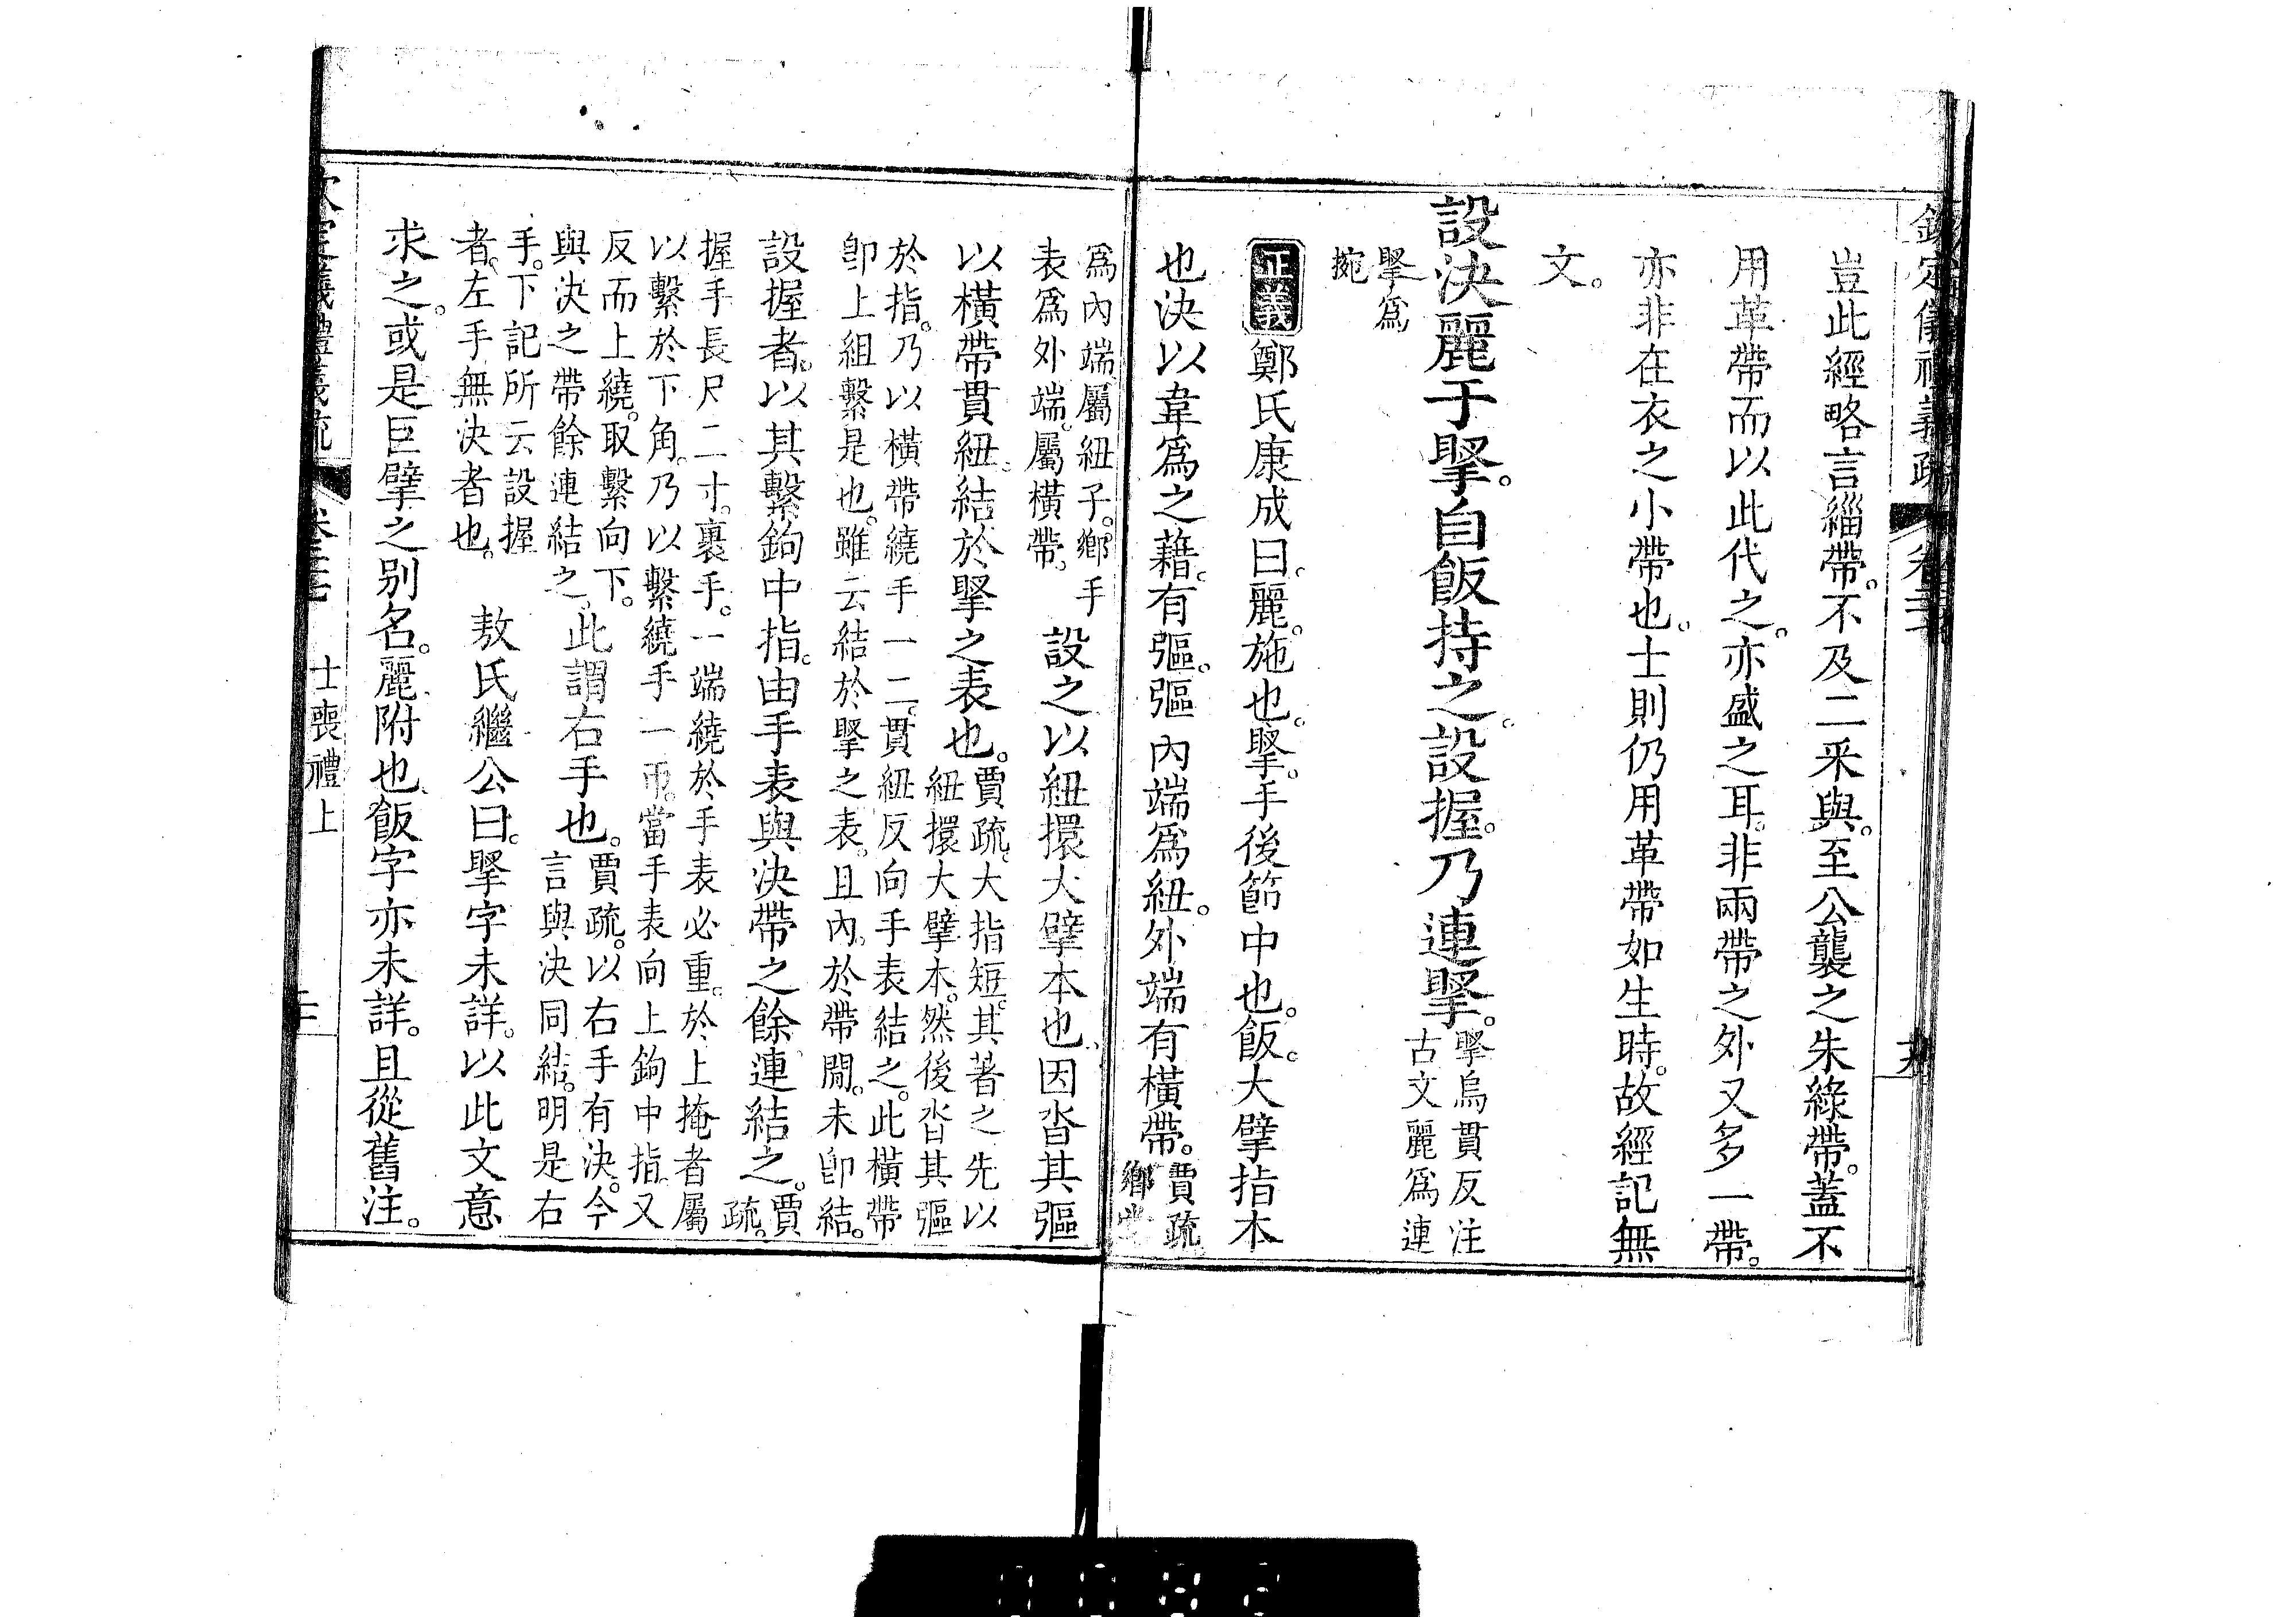 豈此經略言緇帶。不及二采與。至公襲之朱綠帶。蓋不
用革帶而以此代之。亦盛之耳。非兩帶之外又多一帶。
亦非在衣之小帶也。士則仍用革帶如生時。故經記無
文。
設決麗于掔。自飯持之。設握。乃連掔。掔烏貫反注
古文麗爲連
掔爲
捥
正義鄭氏康成曰。麗。施也。掔。手後節中也。飯。大擘指本
也決以韋爲之藉。有彄。彄內端爲紐。外端有橫帶。賈疏
鄉掌
爲內端屬紐子。鄉手
表爲外端。屬橫帶。設之以紐擐大擘本也因沓其彄
以橫帶貫紐。結於掔之表也。賈疏。大指短。其著之先以
紐擐大擘本。然後沓其彄
於指。乃以橫帶繞手一二。貫紐反向手表結之。此橫帶
卽上組繫是也。雖云結於掔之表。且內。於帶閒。未卽結。
設握者。以其繫鉤中指。由手表與決帶之餘連結之。賈
疏。
握手長尺二寸。裹手。一端繞於手表必重。於上掩者屬
以繫於下角。乃以繫繞手一帀。當手表向上鉤中指。又
反而上繞。取繫向下。
與決之帶餘連結之。此謂右手也。賈疏。以右手有決。今
言與決同結。明是右
手。下記所云設握
者。左手無決者也。敖氏繼公曰。掔字未詳。以此文意
求之。或是巨擘之别名。麗附也飯字亦未詳。且從舊注。
士喪禮上